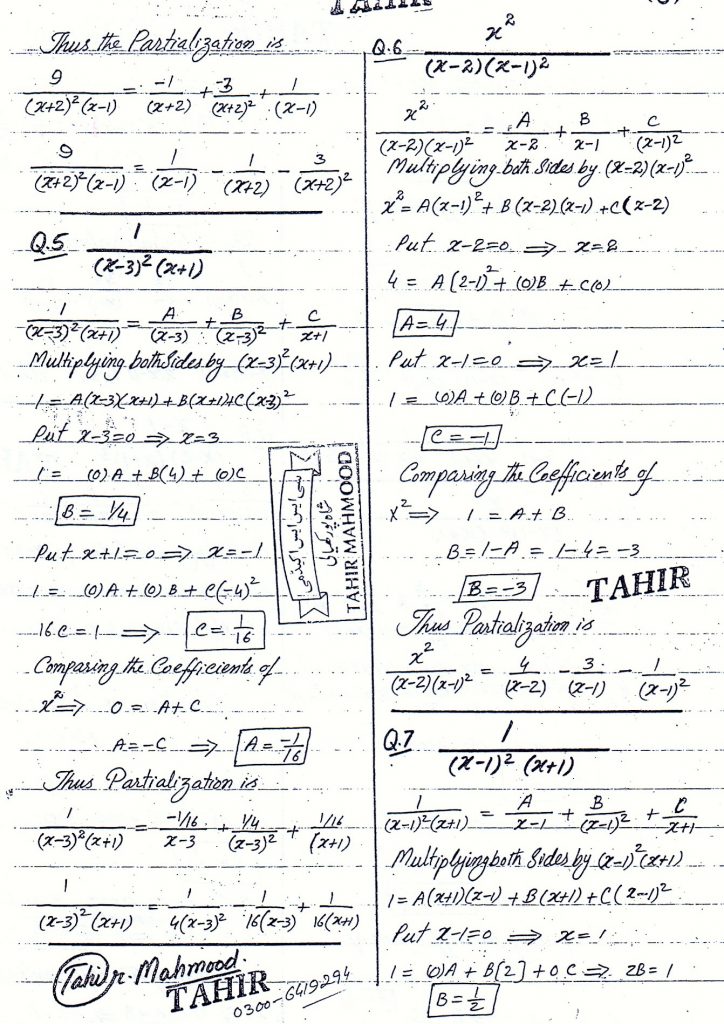 TAHIR
Thus the Partialization is
9/((x+2)²(x-1)) = -1/(x+2) + -3/(x+2)² + 1/(x-1)
9/((x+2)²(x-1)) = 1/(x-1) - 1/(x+2) - 3/(x+2)²
Q.5 1/((x-3)²(x+1))
1/((x-3)²(x+1)) = A/(x-3) + B/(x-3)² + C/(x+1)
Multiplying both Sides by (x-3)²(x+1)
1 = A(x-3)(x+1) + B(x+1)+C(x-3)²
Put x-3=0 ⟹ x=3
1 = (0)A + B(4) + (0)C
B = 1/4
Put x+1=0 ⟹ x=-1
1 = (0)A + (0)B + C(-4)²
16C = 1 ⟹ C = 1/16
Comparing the Coefficients of
x² ⟹ 0 = A+C
A = -C ⟹ A = -1/16
Thus Partialization is
1/((x-3)²(x+1)) = (-1/16)/(x-3) + (1/4)/(x-3)² + (1/16)/(x+1)
1/((x-3)²(x+1)) = 1/(4(x-3)²) - 1/(16(x-3)) + 1/(16(x+1))
Tahir Mahmood.
TAHIR
0300-6419294
TAHIR MAHMOOD
Q.6 x²/((x-2)(x-1)²)
x²/((x-2)(x-1)²) = A/(x-2) + B/(x-1) + C/(x-1)²
Multiplying both Sides by (x-2)(x-1)²
x² = A(x-1)² + B(x-2)(x-1) + C(x-2)
Put x-2=0 ⟹ x=2
4 = A(2-1)² + (0)B + C(0)
A = 4
Put x-1=0 ⟹ x=1
1 = (0)A + (0)B + C(-1)
C = -1
Comparing the Coefficients of
x² ⟹ 1 = A+B
B = 1-A = 1-4 = -3
B = -3
TAHIR
Thus Partialization is
x²/((x-2)(x-1)²) = 4/(x-2) - 3/(x-1) - 1/(x-1)²
Q.7 1/((x-1)²(x+1))
1/((x-1)²(x+1)) = A/(x-1) + B/(x-1)² + C/(x+1)
Multiplying both Sides by (x-1)²(x+1)
1 = A(x+1)(x-1) + B(x+1) + C(x-1)²
Put x-1=0 ⟹ x=1
1 = (0)A + B[2] + 0C ⟹ 2B=1
B = 1/2